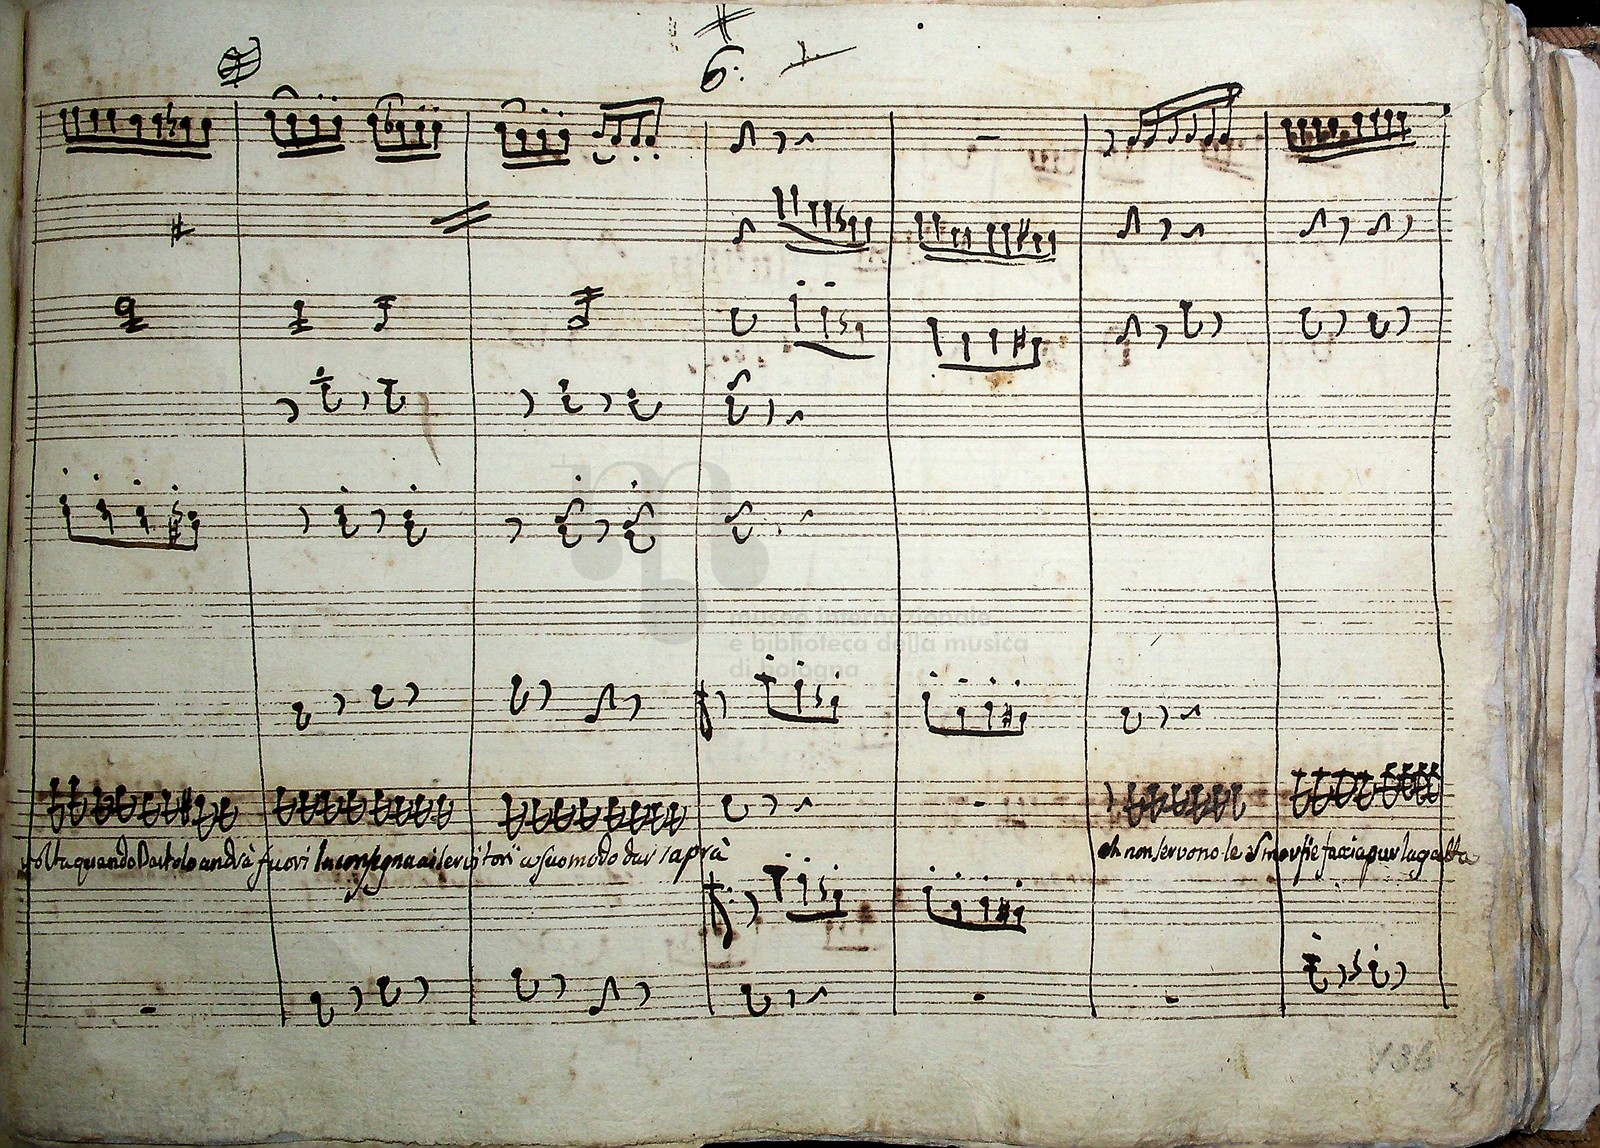 6:
museo internazionale
e biblioteca della musica
di bologna
olta quando Bartolo andrà fuori la consegna ai servitori a suo modo dar saprà
eh non servono le smorfie faccia pur la gatta
136